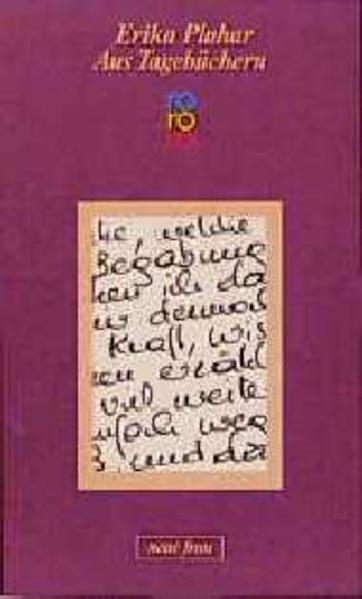 Erika Pluhar
Aus Tagebüchern
ro
ro
ro
he, welche
Begabung
ich da
dennoch
Kraft, wis
erzähl
und weite
nfach weg
und der
neue frau